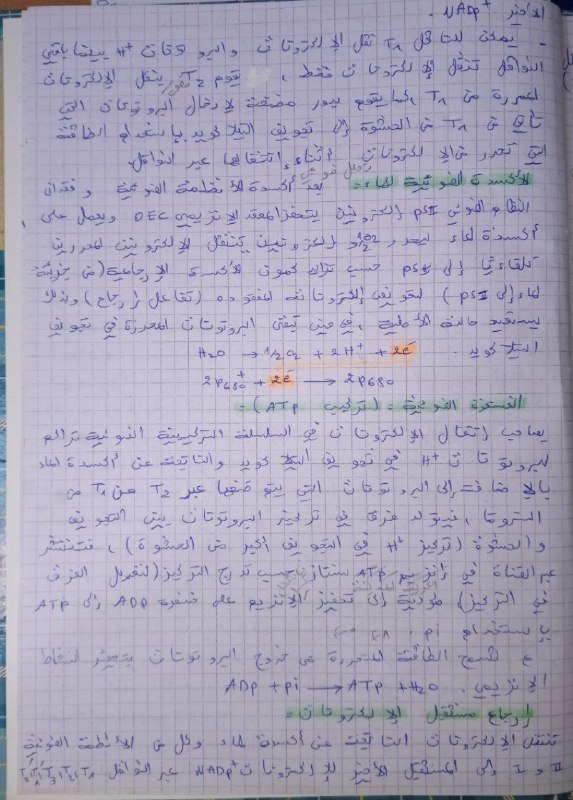 الأخير NADP+.
- يمكن للناقل T1 نقل الإلكترونات والبروتونات H+ بينما باقي
النواقل تنقل الإلكترونات فقط، يقوم T2 بنقل الإلكترونات
المحررة من T1 كما يقوم بدور مضخة لإدخال البروتونات التي
تأتي من T1 من الحشوة إلى تجويف التيلاكويد باستعمال الطاقة
التي تتحرر من الإلكترونات أثناء انتقالها عبر النواقل.
الأكسدة الضوئية للماء: بعد أكسدة الأنظمة الضوئية وفقدان
النظام الضوئي PSII إلكترونين يتحفز المعقد الإنزيمي OEC ويعمل على
أكسدة الماء ليحرر 1/2O2 و إلكترونين تنتقل الإلكترونين المحررين
تلقائيا إلى PSII حسب تزايد كمون الأكسدة الإرجاعية (من جزيئة
الماء إلى PSII) لتعويض إلكتروناته المفقودة (تفاعل إرجاع) وبذلك
يستعيد حالته الأصلية، في حين تبقى البروتونات المحررة في تجويف
التيلاكويد.
H2O → 1/2O2 + 2H+ + 2e-
2P680+ + 2e- → 2P680
الفسفرة الضوئية: (تركيب ATP):
يصاحب انتقال الإلكترونات في السلسلة التركيبية الضوئية تراكم
البروتونات H+ في تجويف التيلاكويد والناتجة عن أكسدة الماء
بالإضافة إلى البروتونات التي يتم ضخها عبر T2 من T1 من
الستروما، فيتولد فرقا في تركيز البروتونات بين التجويف
والحشوة (تركيز H+ في التجويف أكبر من الحشوة)، فتنتشر
عبر القناة في إنزيم ATP سنتاز حسب تدرج التركيز (لتعديل الفرق
في التركيز) مؤدية إلى تحفيز الإنزيم على فسفرة ADP إلى ATP
باستخدام Pi.
تسمح الطاقة المتحررة من خروج البروتونات بتحفيز النشاط
الإنزيمي. ADP + Pi → ATP + H2O
إرجاع مستقبل الإلكترونات:
تنتقل الإلكترونات الناتجة عن أكسدة الماء وكل من الأنظمة الضوئية
II و I إلى المستقبل الأخير للإلكترونات NADP+ عبر النواقل